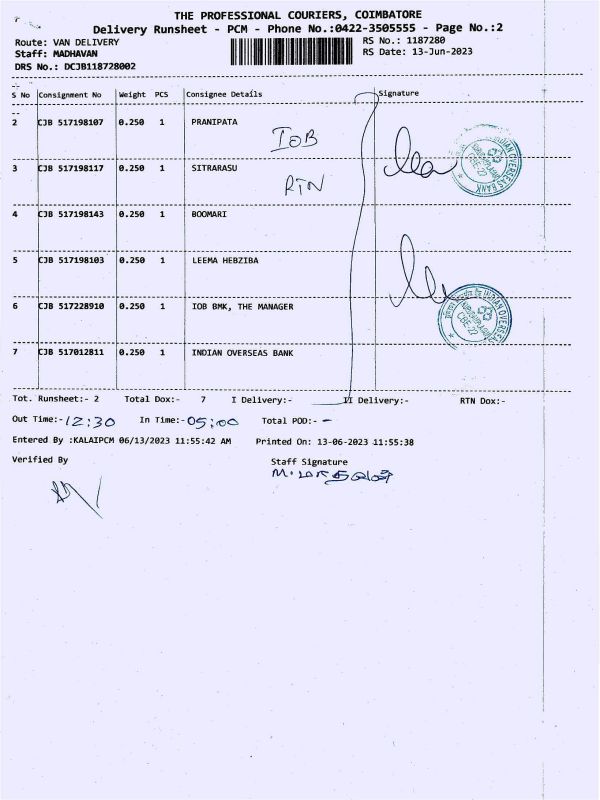 THE PROFESSIONAL COURIERS, COIMBATORE
Delivery Runsheet - PCM - Phone No.:0422-3505555 - Page No.:2
Route: VAN DELIVERY RS No.: 1187280
Staff: MADHAVAN RS Date: 13-Jun-2023
DRS No.: DCJB118728002
S No Consignment No Weight PCS Consignee Details Signature
2 CJB 517198107 0.250 1 PRANIPATA
IOB
3 CJB 517198117 0.250 1 SITRARASU
RTN
INDIAN OVERSEAS BANK
CBE-27
4 CJB 517198143 0.250 1 BOOMARI
5 CJB 517198103 0.250 1 LEEMA HEBZIBA
6 CJB 517228910 0.250 1 IOB BMK, THE MANAGER
INDIAN OVERSEAS
CBE-27
7 CJB 517012811 0.250 1 INDIAN OVERSEAS BANK
Tot. Runsheet:- 2 Total Dox:- 7 I Delivery:- II Delivery:- RTN Dox:-
Out Time:- 12:30 In Time:- 05:00 Total POD:- -
Entered By :KALAIPCM 06/13/2023 11:55:42 AM Printed On: 13-06-2023 11:55:38
Verified By Staff Signature